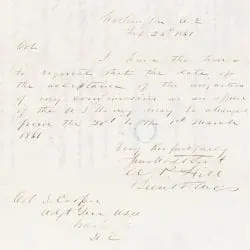 Washington D.C
Feb 26th 1861
Col
I have the honor
to request that the date of
the acceptance of the resignation
of my commission as an officer
of the U.S. Army may be changed
from the to the 1st March
1861
Very respectfully
Your Obdt Svt
A P Hill
Col S. Cooper
Adjt Genl USA
D C